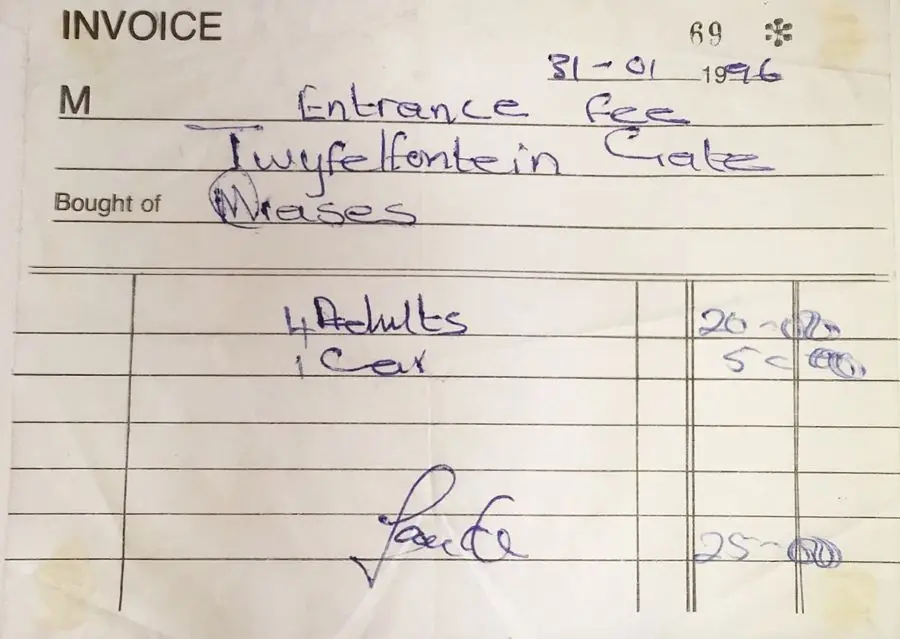 INVOICE 69 *
31-01 1996
M Entrance fee
Twyfelfontein Gate
Bought of
4 Adults 20-00
1 Car 5-00
25-00